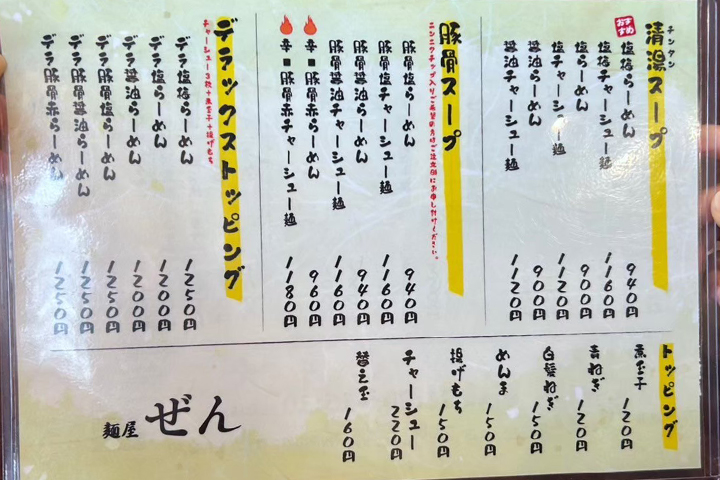 チンタン
清湯スープ
おすすめ
塩梅らーめん 940円
塩梅チャーシュー麺 1160円
塩らーめん 900円
塩チャーシュー麺 1120円
醤油らーめん 900円
醤油チャーシュー麺 1120円
豚骨スープ
ニンニクチップ入りご希望の方はご注文の際にお申し付けください。
豚骨塩らーめん 940円
豚骨塩チャーシュー麺 1160円
豚骨醤油らーめん 940円
豚骨醤油チャーシュー麺 1160円
辛■豚骨赤らーめん 960円
辛■豚骨赤チャーシュー麺 1180円
デラックストッピング
チャーシュー3枚+煮玉子+揚げもち
デラ塩梅らーめん 1250円
デラ塩らーめん 1200円
デラ醤油らーめん 1200円
デラ豚骨塩らーめん 1250円
デラ豚骨醤油らーめん 1250円
デラ豚骨赤らーめん 1250円
トッピング
煮玉子 120円
青ねぎ 120円
白髪ねぎ 150円
めんま 150円
揚げもち 150円
チャーシュー 220円
替え玉 160円
麺屋 ぜん